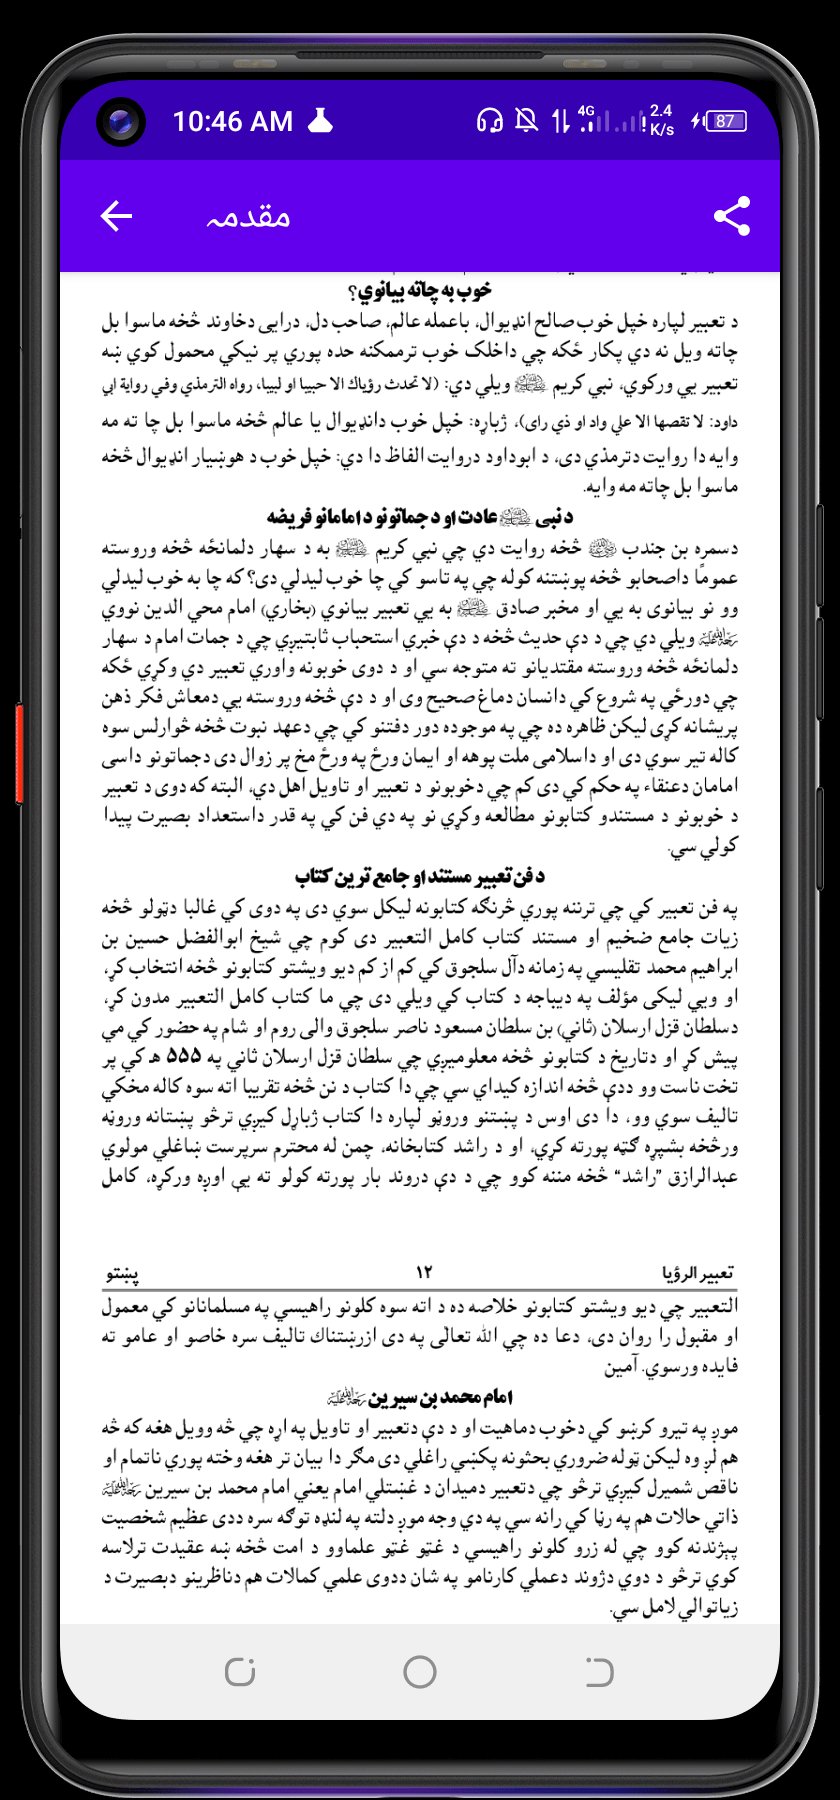 10:46 AM
4G
2.4 K/s
87
مقدمہ
خوب به چاته بيانوي؟
د تعبير لپاره خپل خوب صالح انډيوال، باعمله عالم، صاحب دل، درايی دخاوند څخه ماسوا بل
چاته ويل نه دي پکار ځکه چي داخلک خوب ترممکنه حده پوري پر نيکي محمول کوي ښه
تعبير يي ورکوي، نبي کريم ﷺ ويلي دي: (لا تحدث رؤياك الا حبيبا او لبيبا، رواه الترمذي وفي رواية ابي
داود: لا تقصها الا علي واد او ذي رای)، ژباړه: خپل خوب دانډيوال يا عالم څخه ماسوا بل چا ته مه
وايه دا روايت دترمذي دی، د ابوداود دروايت الفاظ دا دي: خپل خوب د هوښيار انډيوال څخه
ماسوا بل چاته مه وايه.
د نبی ﷺ عادت او د جماتونو د امامانو فريضه
دسمره بن جندب رضي الله عنه څخه روايت دي چي نبي کريم ﷺ به د سهار دلمانځه څخه وروسته
عمومًا داصحابو څخه پوښتنه کوله چي په تاسو کي چا خوب ليدلي دی؟ که چا به خوب ليدلي
وو نو بيانوی به يي او مخبر صادق ﷺ به يي تعبير بيانوي (بخاري) امام محي الدين نووي
رحمة الله عليه ويلي دي چي د دې حديث څخه د دې خبري استحباب ثابتيږي چي د جمات امام د سهار
دلمانځه څخه وروسته مقتديانو ته متوجه سي او د دوی خوبونه واوري تعبير دي وکړي ځکه
چي دورځي په شروع کي دانسان دماغ صحيح وی او د دې څخه وروسته يي دمعاش فکر ذهن
پريشانه کړی ليکن ظاهره ده چي په موجوده دور دفتنو کي چي دعهد نبوت څخه څوارلس سوه
کاله تير سوي دی او داسلامی ملت پوهه او ايمان ورځ په ورځ مخ پر زوال دی دجماتونو داسی
امامان دعنقاء په حکم کي دی کم چي دخوبونو د تعبير او تاويل اهل دي، البته که دوی د تعبير
د خوبونو د مستندو کتابونو مطالعه وکړي نو په دي فن کي په قدر داستعداد بصيرت پيدا
کولي سي.
د فن تعبير مستند او جامع ترين کتاب
په فن تعبير کي چي ترننه پوري څرنګه کتابونه ليکل سوي دی په دوی کي غالبا دټولو څخه
زيات جامع ضخيم او مستند کتاب کامل التعبير دی کوم چي شيخ ابوالفضل حسين بن
ابراهيم محمد تقليسي په زمانه دآل سلجوق کي کم از کم ديو ويشتو کتابونو څخه انتخاب کړ،
او ويي ليکی مؤلف په ديباجه د کتاب کي ويلي دی چي ما کتاب کامل التعبير مدون کړ،
دسلطان قزل ارسلان (ثاني) بن سلطان مسعود ناصر سلجوق والی روم او شام په حضور کي مي
پيش کړ او دتاريخ د کتابونو څخه معلوميږي چي سلطان قزل ارسلان ثاني په ۵۵۵ هـ کي پر
تخت ناست وو ددې څخه اندازه کيدای سي چي دا کتاب د نن څخه تقريبا اته سوه کاله مخکي
تاليف سوي وو، دا دی اوس د پښتنو وروڼو لپاره دا کتاب ژباړل کيږي ترڅو پښتانه وروڼه
ورڅخه بشپړه ګټه پورته کړي، او د راشد کتابخانه، چمن له محترم سرپرست ښاغلي مولوي
عبدالرازق "راشد" څخه مننه کوو چي د دې دروند بار پورته کولو ته يې اوږه ورکړه، کامل
تعبير الرؤيا ١٢ پښتو
التعبير چي ديو ويشتو کتابونو خلاصه ده د اته سوه کلونو راهيسي په مسلمانانو کي معمول
او مقبول را روان دی، دعا ده چي الله تعالٰی په دی ازرښتناك تاليف سره خاصو او عامو ته
فايده ورسوي. آمين
امام محمد بن سيرين رحمة الله عليه
موږ په تيرو کرښو کي دخوب دماهيت او د دې دتعبير او تاويل په اړه چي څه وويل هغه که څه
هم لږ وه ليکن ټوله ضروري بحثونه پکښي راغلي دی مګر دا بيان تر هغه وخته پوري ناتمام او
ناقص شميرل کيږي ترڅو چي دتعبير دميدان د غښتلي امام يعني امام محمد بن سيرين رحمة الله عليه
ذاتي حالات هم په رڼا کي رانه سي په دي وجه موږ دلته په لنډه توګه سره ددی عظيم شخصيت
پېژندنه کوو چي له زرو کلونو راهيسي د غټو غټو علماوو د امت څخه ښه عقيدت ترلاسه
کوي ترڅو د دوي دژوند دعملي کارنامو په شان ددوی علمي کمالات هم دناظرينو دبصيرت د
زياتوالي لامل سي.